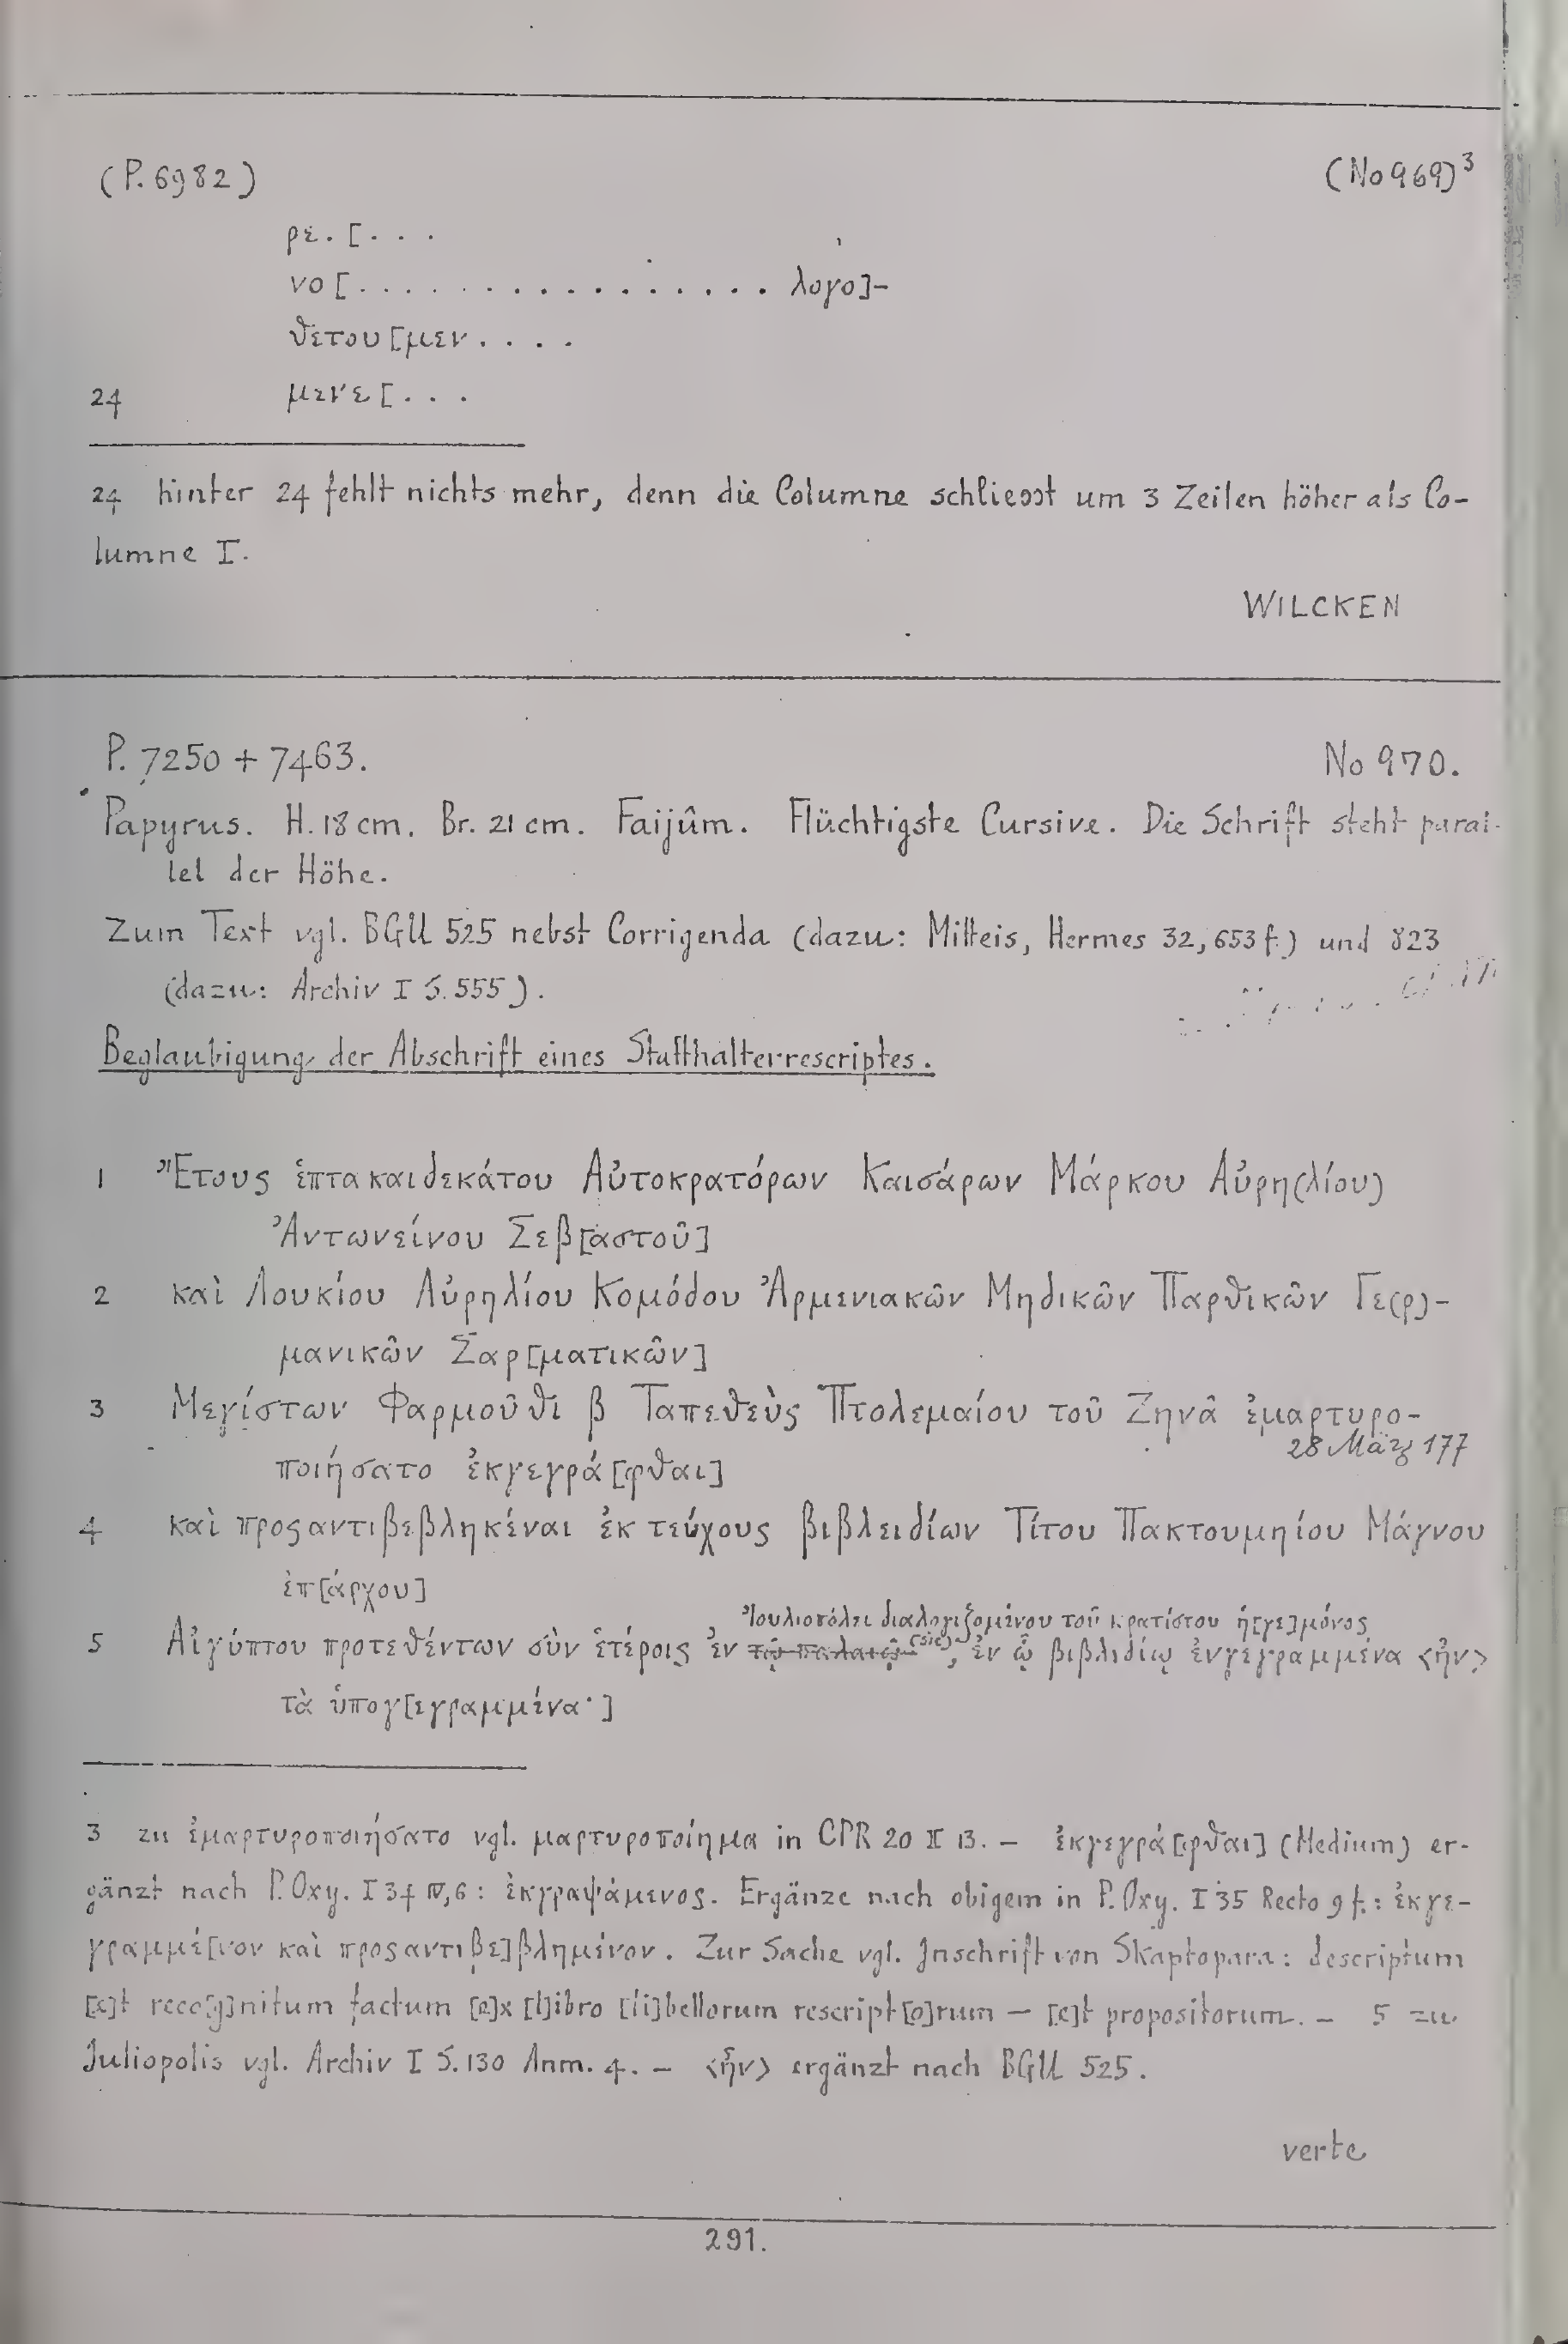 (P. 6982) (No 969)³
ρε. [. . .
νο [. . . . . . . . . . . . . . . . λογο]-
θετου [μεν . . . .
24 μενε [. . .
24 hinter 24 fehlt nichts mehr, denn die Columne schliesst um 3 Zeilen höher als Co-
lumne I.
WILCKEN
P. 7250 + 7463. No 970.
Papyrus. H. 18 cm. Br. 21 cm. Faijûm. Flüchtigste Cursive. Die Schrift steht paral-
lel der Höhe.
Zum Text vgl. BGU 525 nebst Corrigenda (dazu: Mitteis, Hermes 32, 653 f.) und 823
(dazu: Archiv I S. 555).
Beglaubigung der Abschrift eines Statthalterrescriptes.
1 Ἔτους ἑπτακαιδεκάτου Αὐτοκρατόρων Καισάρων Μάρκου Αὐρη(λίου)
Ἀντωνείνου Σεβ[αστοῦ]
2 καὶ Λουκίου Αὐρηλίου Κομόδου Ἀρμενιακῶν Μηδικῶν Παρθικῶν Γε(ρ)-
μανικῶν Σαρ[ματικῶν]
3 Μεγίστων Φαρμοῦθι β Ταπεθεὺς Πτολεμαίου τοῦ Ζηνᾶ ἐμαρτυρο-
28 März 177
ποιήσατο ἐκγεγρά[φθαι]
4 καὶ προςαντιβεβληκέναι ἐκ τεύχους βιβλειδίων Τίτου Πακτουμηίου Μάγνου
ἐπ[άρχου]
Ἰουλιοπόλει διαλογιζομένου τοῦ κρατίστου ἡ[γε]μόνος
5 Αἰγύπτου προτεθέντων σὺν ἑτέροις ἐν τῷ παλαιῷ (sic), ἐν ᾧ βιβλιδίῳ ἐνγεγραμμένα <ἦν>
τὰ ὑπογ[εγραμμένα· ]
3 zu ἐμαρτυροποιήσατο vgl. μαρτυροποίημα in CPR 20 II 13. — ἐκγεγρά[φθαι] (Medium) er-
gänzt nach P. Oxy. I 34 IV, 6 : ἐκγραψάμενος. Ergänze nach obigem in P. Oxy. I 35 Recto 9 f. : ἐκγε-
γραμμέ[νον καὶ προςαντιβε]βλημένον. Zur Sache vgl. Inschrift von Skaptopara : descriptum
[e]t reco[g]nitum factum [e]x [l]ibro [li]bellorum rescript[o]rum — [e]t propositorum. — 5 zu
Juliopolis vgl. Archiv I S. 130 Anm. 4. — <ἦν> ergänzt nach BGU 525.
verte
291.